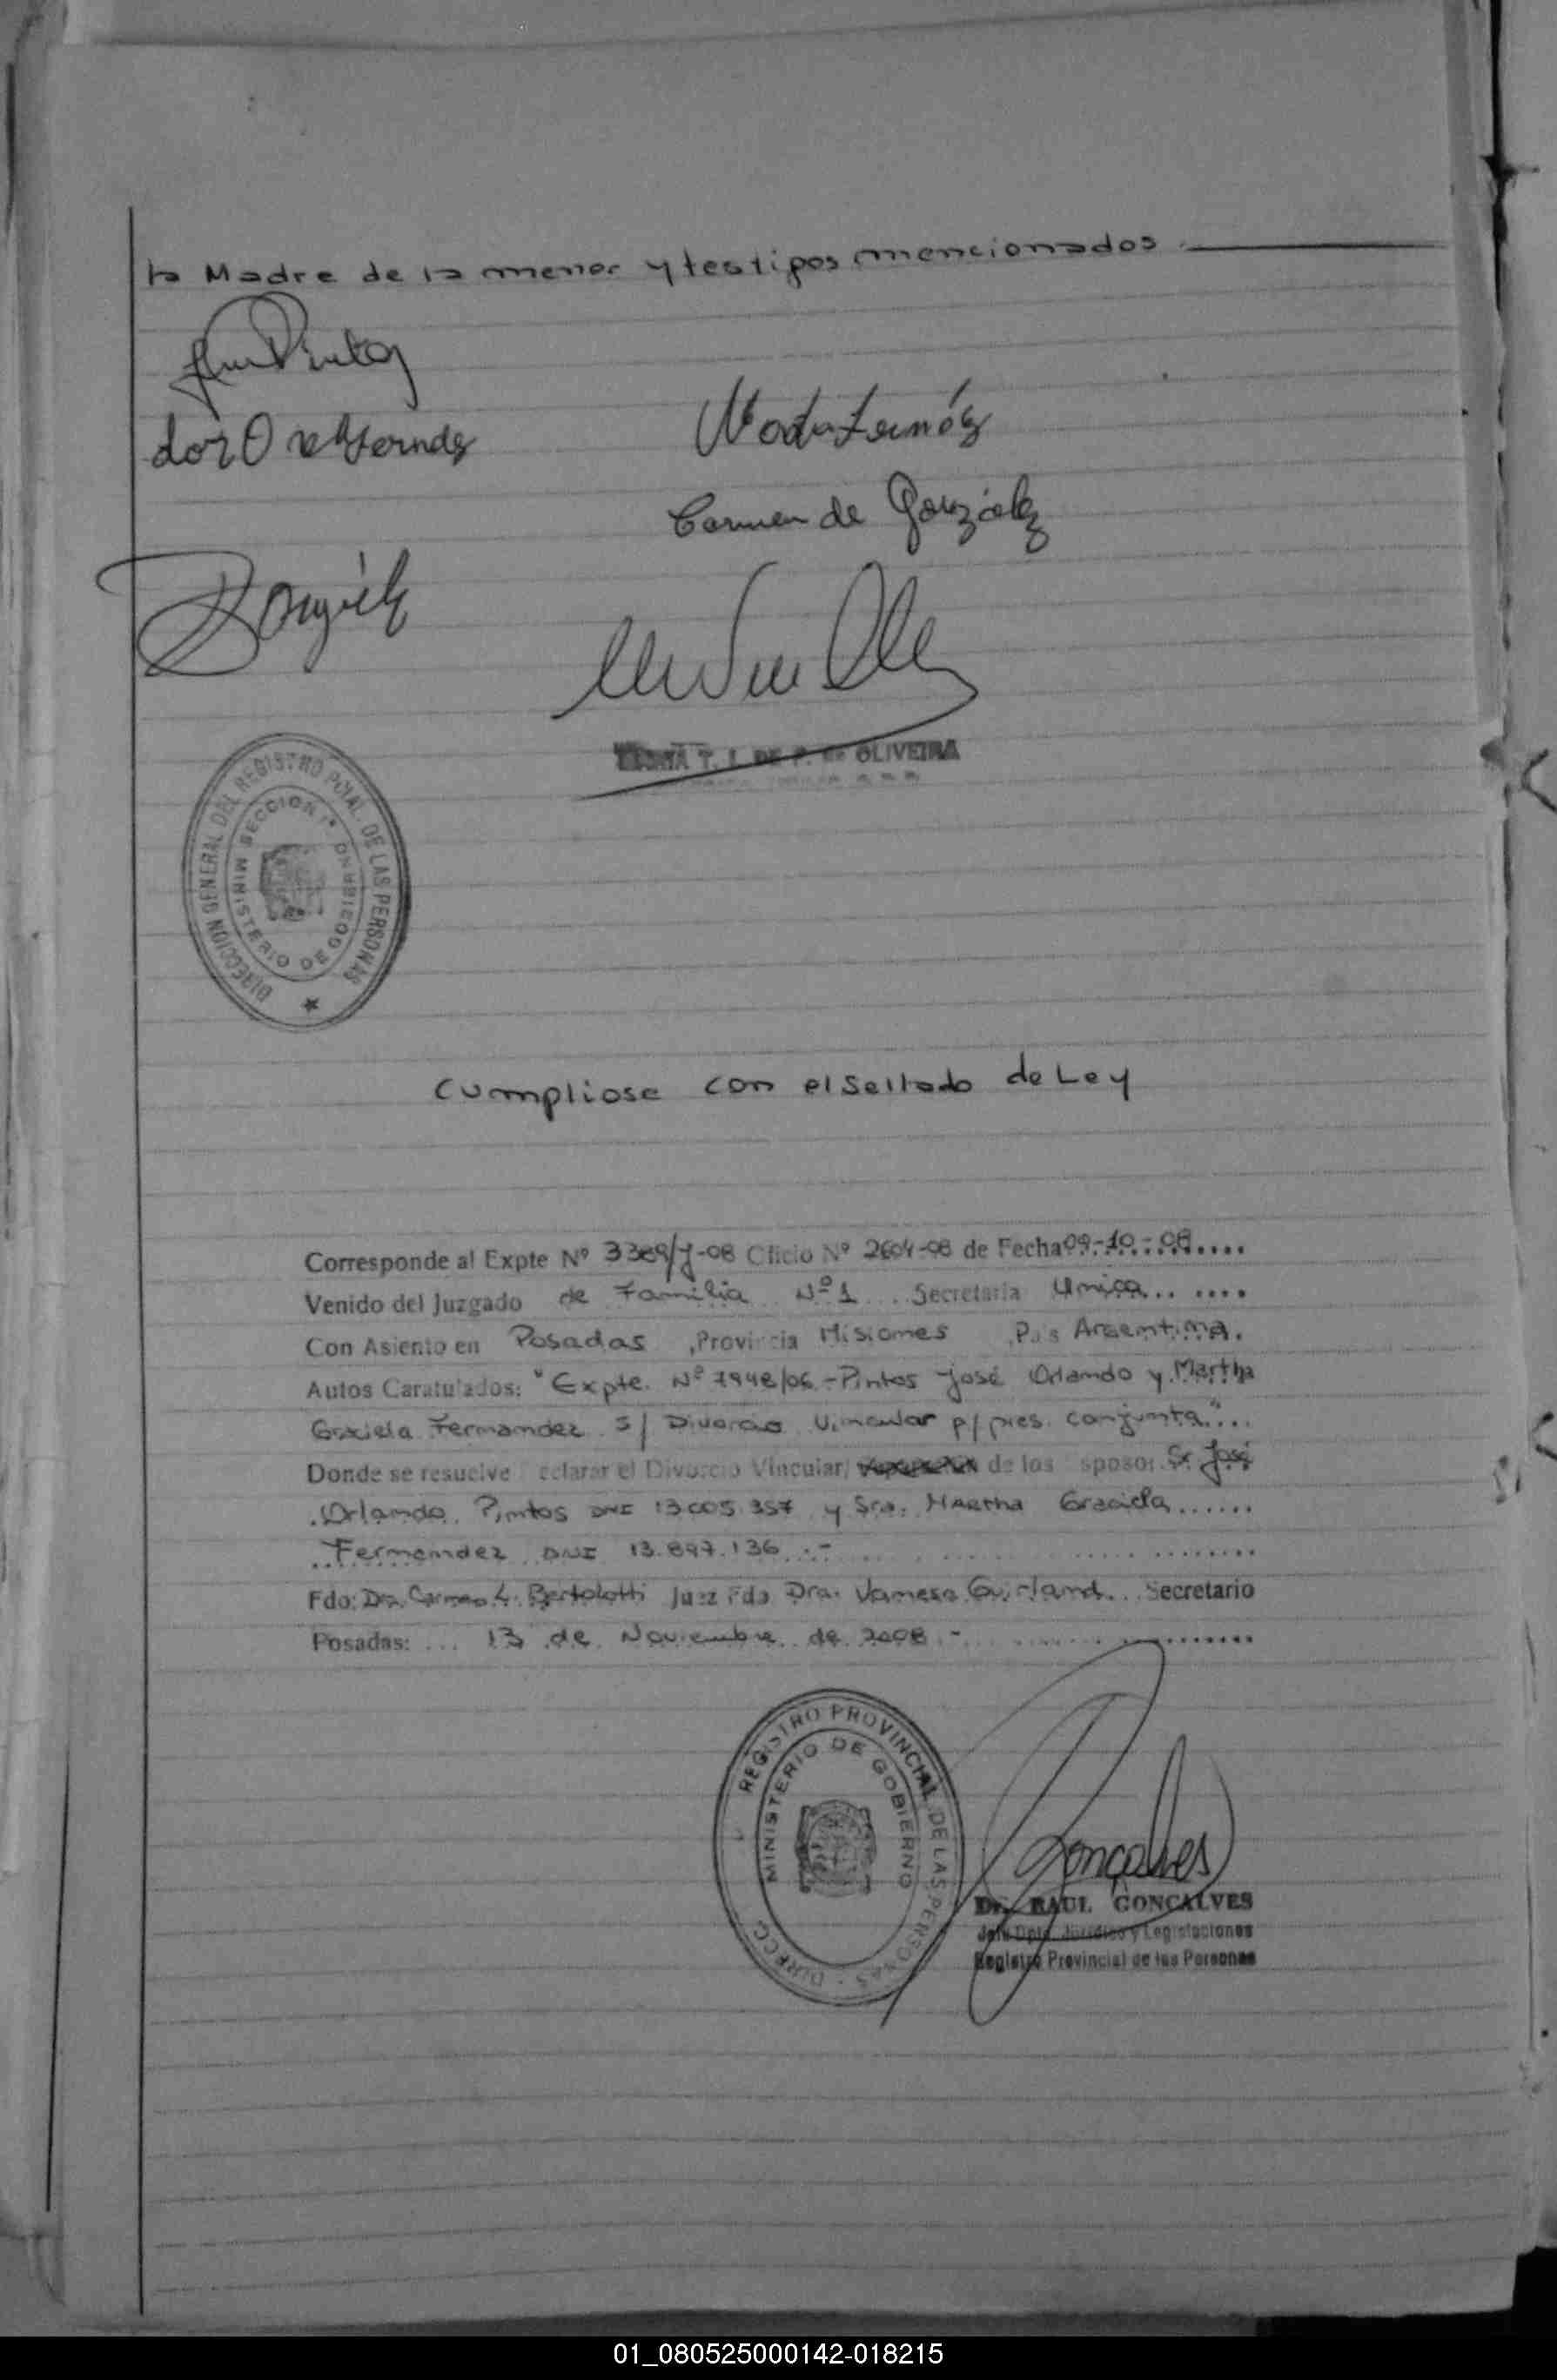 la Madre de la menor y testigos mencionados
Carmen de González
T. I. DE F. de OLIVEIRA
DIRECCION GENERAL DEL REGISTRO PCIAL. DE LAS PERSONAS
SECCION 1ª
MINISTERIO DE GOBIERNO
Cumpliose con el Sellado de Ley
Corresponde al Expte Nº 3389/J-08 Oficio Nº 2604-08 de Fecha 09-10-08
Venido del Juzgado de Familia Nº 1 Secretaria Unica
Con Asiento en Posadas, Provincia Misiones, País Argentina.
Autos Caratulados: "Expte. Nº 7948/06 - Pintos José Orlando y Martha
Graciela Fernandez S/ Divorcio Vincular p/ pres. conjunta"
Donde se resuelve eclarar el Divorcio Vincular/ de los sposos Sr. José
Orlando Pintos DNI 13.005.357 y Sra. Martha Graciela
Fernandez DNI 13.897.136.-
Fdo: Dra. Carmen L. Bertolotti Juez Fdo Dra. Vanesa Guirland Secretario
Posadas: 13 de Noviembre de 2008.-
REGISTRO PROVINCIAL DE LAS PERSONAS
MINISTERIO DE GOBIERNO
Gonçalves
Dr. RAUL GONCALVES
Jefe Dpto. Jurídico y Legislaciones
Registro Provincial de las Personas
01_080525000142-018215